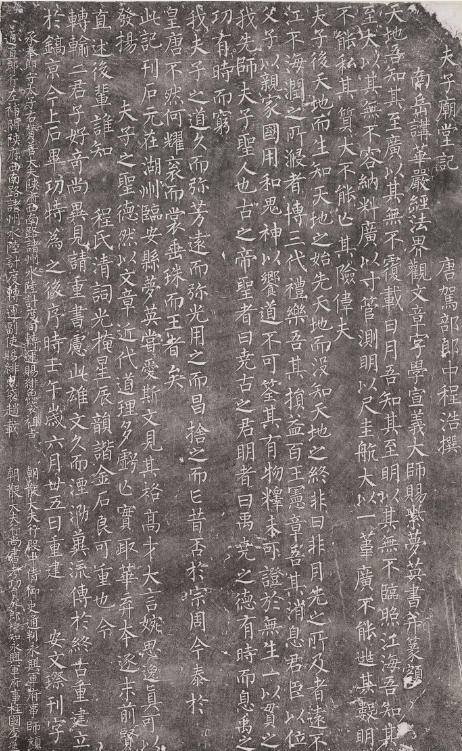 夫子廟堂記 唐駕部郎中程浩撰
南岳講華嚴經法界觀文章字學宣義大師賜紫夢英書并篆額
天地吾知其至廣以其無不覆載日月吾知其至明以其無不臨照江海吾知其
至大以其無不容納料廣以寸管測明以尺圭航大以一葦廣不能逃其數明
不能私其筭大不能亡其險偉夫
夫子後天地而生知天地之始先天地而沒知天地之終非日非月光之所及者遠不
江不海潤之所浸者博三代禮樂吾其損益百王憲章吾其消息君臣以位
父子以親家國用和鬼神以饗道不可筌其有物釋未可證於無生一以貫之
我先師夫子聖人也古之帝聖者曰堯古之君明者曰禹堯之德有時而息禹之
功有時而窮
我夫子之道久而弥芳遠而弥光用之而昌捨之而亡昔否於宗周今泰於
皇唐不然何耀袞而裳垂珠而王者矣
此記刊石元在湖州臨安縣夢英嘗愛斯文見其格高才大言婉思逸真可以
發揚 夫子之聖德然以文章近代道理多虧亡實取華弃本逐末前賢
直述後輩誰知 程氏清詞光掩星辰韻諧金石良可重也今
轉輸二君子好奇尚異見請重書慮此雄文久而湮沏冀流傳於終古重建立
於鎬京今上石畢功特為之後序時壬午歲六月廿五日重建 安文璨刊字